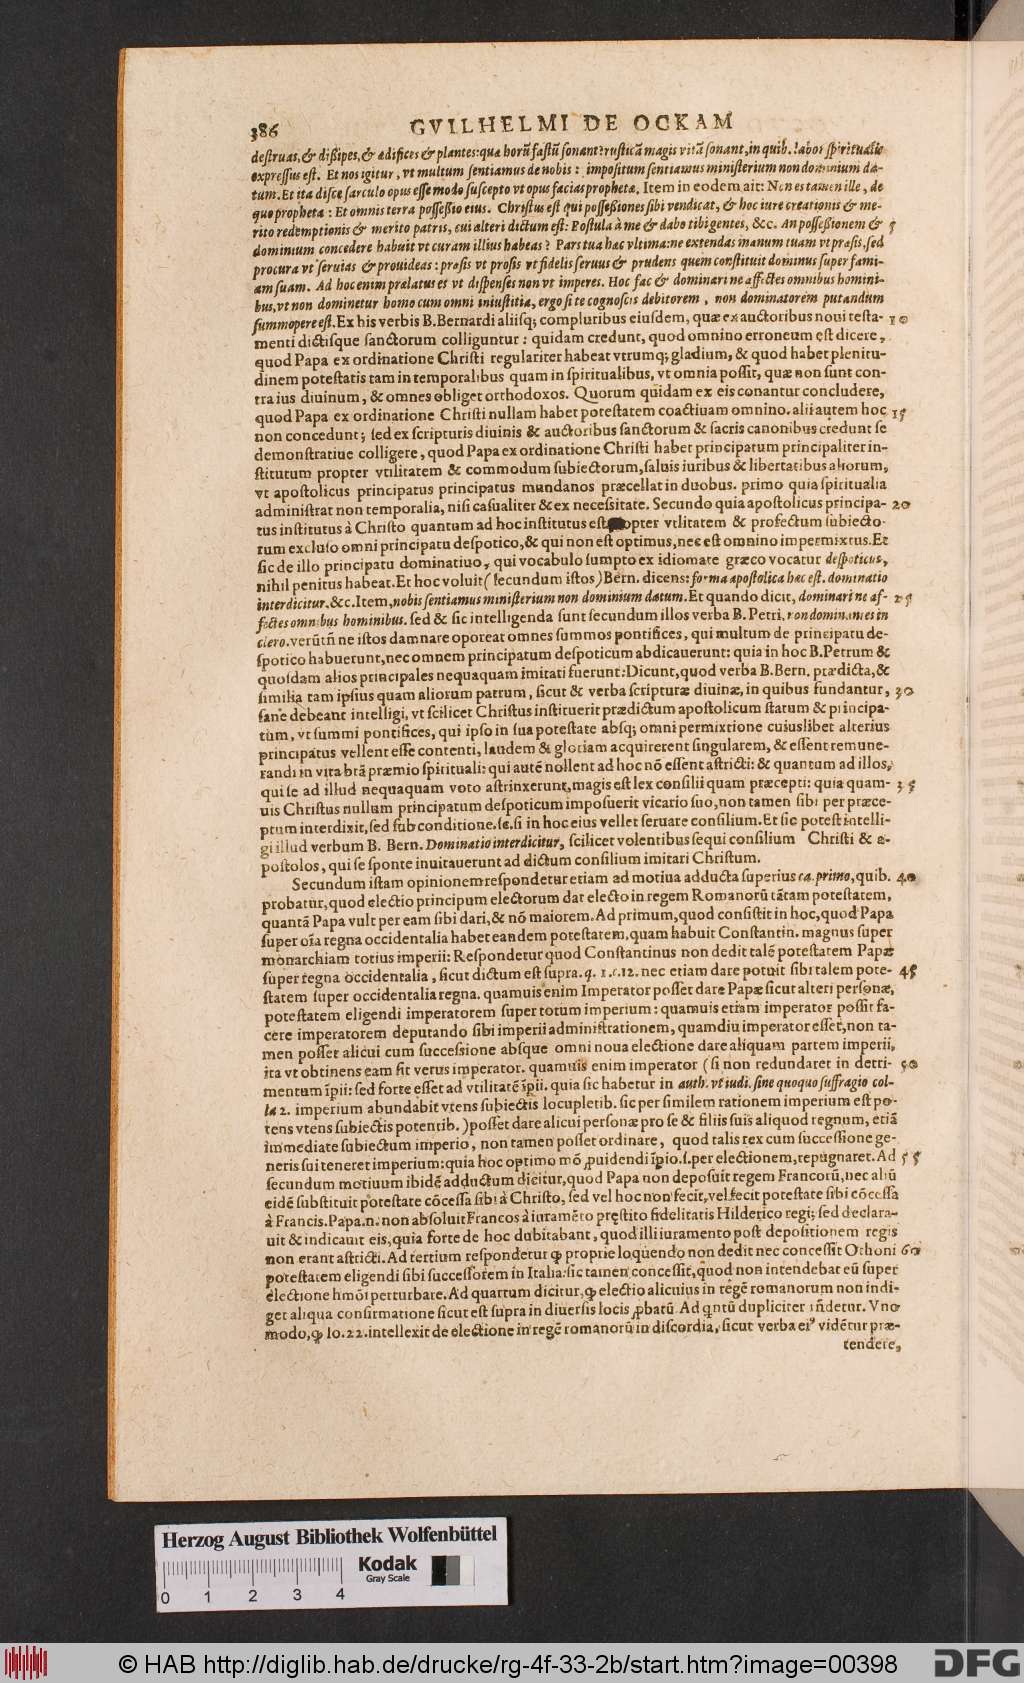 386 GVILHELMI DE OCKAM
destruas, & dißipes, & ædifices & plantes: qua horũ fastũ sonant? rusticã magis vitã sonant, in quib. labor spiritualis
expressus est. Et nos igitur, vt multum sentiamus de nobis: impositum sentiamus ministerium non dominium da-
tum. Et ita disce sarculo opus esse modo suscepto vt opus facias propheta. Item in eodem ait: Non es tamen ille, de
quo propheta: Et omnis terra possessio eius. Christus est qui possessiones sibi vendicat, & hoc iure creationis & me-
rito redemptionis & merito patris, cui alteri dictum est: Postula à me & dabo tibi gentes, &c. An possessionem & 5
dominium concedere habuit vt curam illius habeas? Pars tua hac vltima: ne extendas manum tuam vt præsis, sed
procura vt seruias & prouideas: præsis vt prosis vt fidelis seruus & prudens quem constituit dominus super fami-
am suam. Ad hoc enim prælatus es vt dispenses non vt imperes. Hoc fac & dominari ne affectes omnibus homini-
bus, vt non dominetur homo cum omni iniustitia, ergo si te cognoscis debitorem, non dominatorem putandum
summopere est. Ex his verbis B. Bernardi aliisq; compluribus eiusdem, quæ ex auctoribus noui testa- 10
menti dictisque sanctorum colliguntur: quidam credunt, quod omnino erroneum est dicere,
quod Papa ex ordinatione Christi regulariter habeat vtrumq; gladium, & quod habet plenitu-
dinem potestatis tam in temporalibus quam in spiritualibus, vt omnia possit, quæ non sunt con-
tra ius diuinum, & omnes obliget orthodoxos. Quorum quidam ex eis conantur concludere,
quod Papa ex ordinatione Christi nullam habet potestatem coactiuam omnino. alii autem hoc 15
non concedunt; sed ex scripturis diuinis & auctoribus sanctorum & sacris canonibus credunt se
demonstratiue colligere, quod Papa ex ordinatione Christi habet principatum principaliter in-
stitutum propter vtilitatem & commodum subiectorum, saluis iuribus & libertatibus aliorum,
vt apostolicus principatus principatus mundanos præcellat in duobus. primo quia spiritualia
administrat non temporalia, nisi casualiter & ex necessitate. Secundo quia apostolicus principa- 20
tus institutus à Christo quantum ad hoc institutus est opter vtilitatem & profectum subiecto-
rum excluso omni principatu despotico, & qui non est optimus, nec est omnino impermixtus. Et
sic de illo principatu dominatiuo, qui vocabulo sumpto ex idiomate græco vocatur despoticus,
nihil penitus habeat. Et hoc voluit (secundum istos) Bern. dicens: forma apostolica hac est. dominatio
interdicitur. &c. Item, nobis sentiamus ministerium non dominium datum. Et quando dicit, dominari ne af- 25
fectes omnibus hominibus. sed & sic intelligenda sunt secundum illos verba B. Petri, non dominantes in
clero. verũtñ ne istos damnare oporeat omnes summos pontifices, qui multum de principatu de-
spotico habuerunt, nec omnem principatum despoticum abdicauerunt: quia in hoc B. Petrum &
quosdam alios principales nequaquam imitati fuerunt: Dicunt, quod verba B. Bern. prædicta, &
similia tam ipsius quam aliorum patrum, sicut & verba scripturæ diuinæ, in quibus fundantur, 30
sane debeant intelligi, vt scilicet Christus instituerit prædictum apostolicum statum & principa-
tum, vt summi pontifices, qui ipso in sua potestate absq; omni permixtione cuiuslibet alterius
principatus vellent esse contenti, laudem & gloriam acquirerent singularem, & essent remune-
randi in vita btã præmio spirituali: qui autẽ nollent ad hoc nõ essent astricti: & quantum ad illos,
qui se ad illud nequaquam voto astrinxerunt, magis est lex consilii quam præcepti: quia quam- 35
uis Christus nullum principatum despoticum imposuerit vicario suo, non tamen sibi per præce-
ptum interdixit, sed sub conditione. sc. si in hoc eius vellet seruare consilium. Et sic potest intelli-
gi illud verbum B. Bern. Dominatio interdicitur, scilicet volentibus sequi consilium Christi & a-
postolos, qui se sponte inuitauerunt ad dictum consilium imitari Christum.
Secundum istam opinionem respondetur etiam ad motiua adducta superius ca. primo, quib. 40
probatur, quod electio principum electorum dat electo in regem Romanorũ tãtam potestatem,
quantã Papa vult per eam sibi dari, & nõ maiorem. Ad primum, quod consistit in hoc, quod Papa
super oĩa regna occidentalia habet eandem potestatem, quam habuit Constantin. magnus super
monarchiam totius imperii: Respondetur quod Constantinus non dedit talẽ potestatem Papæ
super regna occidentalia, sicut dictum est supra. q. 1. c. 12. nec etiam dare potuit sibi talem pote- 45
statem super occidentalia regna. quamuis enim Imperator posset dare Papæ sicut alteri personæ,
potestatem eligendi imperatorem super totum imperium: quamuis etiam imperator possit fa-
cere imperatorem deputando sibi imperii administrationem, quamdiu imperator esset, non ta-
men posset alicui cum successione absque omni noua electione dare aliquam partem imperii,
ita vt obtinens eam sit verus imperator. quamuis enim imperator (si non redundaret in detri- 50
mentum ĩpii: sed forte esset ad vtilitatẽ ĩpii. quia sic habetur in auth. vt iudi. sine quoquo suffragio col-
la 2. imperium abundabit vtens subiectis locupletib. sic per similem rationem imperium est po-
tens vtens subiectis potentib.) posset dare alicui personæ pro se & filiis suis aliquod regnum, etiã
immediate subiectum imperio, non tamen posset ordinare, quod talis rex cum successione ge-
neris sui teneret imperium: quia hoc optimo mõ ꝓuidendi ĩpio. s. per electionem, repugnaret. Ad 55
secundum motiuum ibidẽ adductum dicitur, quod Papa non deposuit regem Francorũ, nec aliũ
eidẽ substituit potestate cõcessa sibi à Christo, sed vel hoc non fecit, vel fecit potestate sibi cõcessa
à Francis. Papa. n. non absoluit Francos à iuramẽto pręstito fidelitatis Hilderico regi; sed declara-
uit & indicauit eis, quia forte de hoc dubitabant, quod illi iuramento post depositionem regis
non erant astricti. Ad tertium respondetur ꝙ proprie loquendo non dedit nec concessit Othoni 60
potestatem eligendi sibi successorem in Italia: sic tamen concessit, quod non intendebat eũ super
electione hmõi perturbare. Ad quartum dicitur, ꝙ electio alicuius in regẽ romanorum non indi-
get aliqua confirmatione sicut est supra in diuersis locis ꝓbatũ. Ad qntũ dupliciter rñdetur. Vno
modo, ꝙ Io. 22. intellexit de electione in regẽ romanorũ in discordia, sicut verba eiꝰ vidẽtur præ-
tendere,
Herzog August Bibliothek Wolfenbüttel
Kodak
Gray Scale
0 1 2 3 4
© HAB http://diglib.hab.de/drucke/rg-4f-33-2b/start.htm?image=00398
DFG